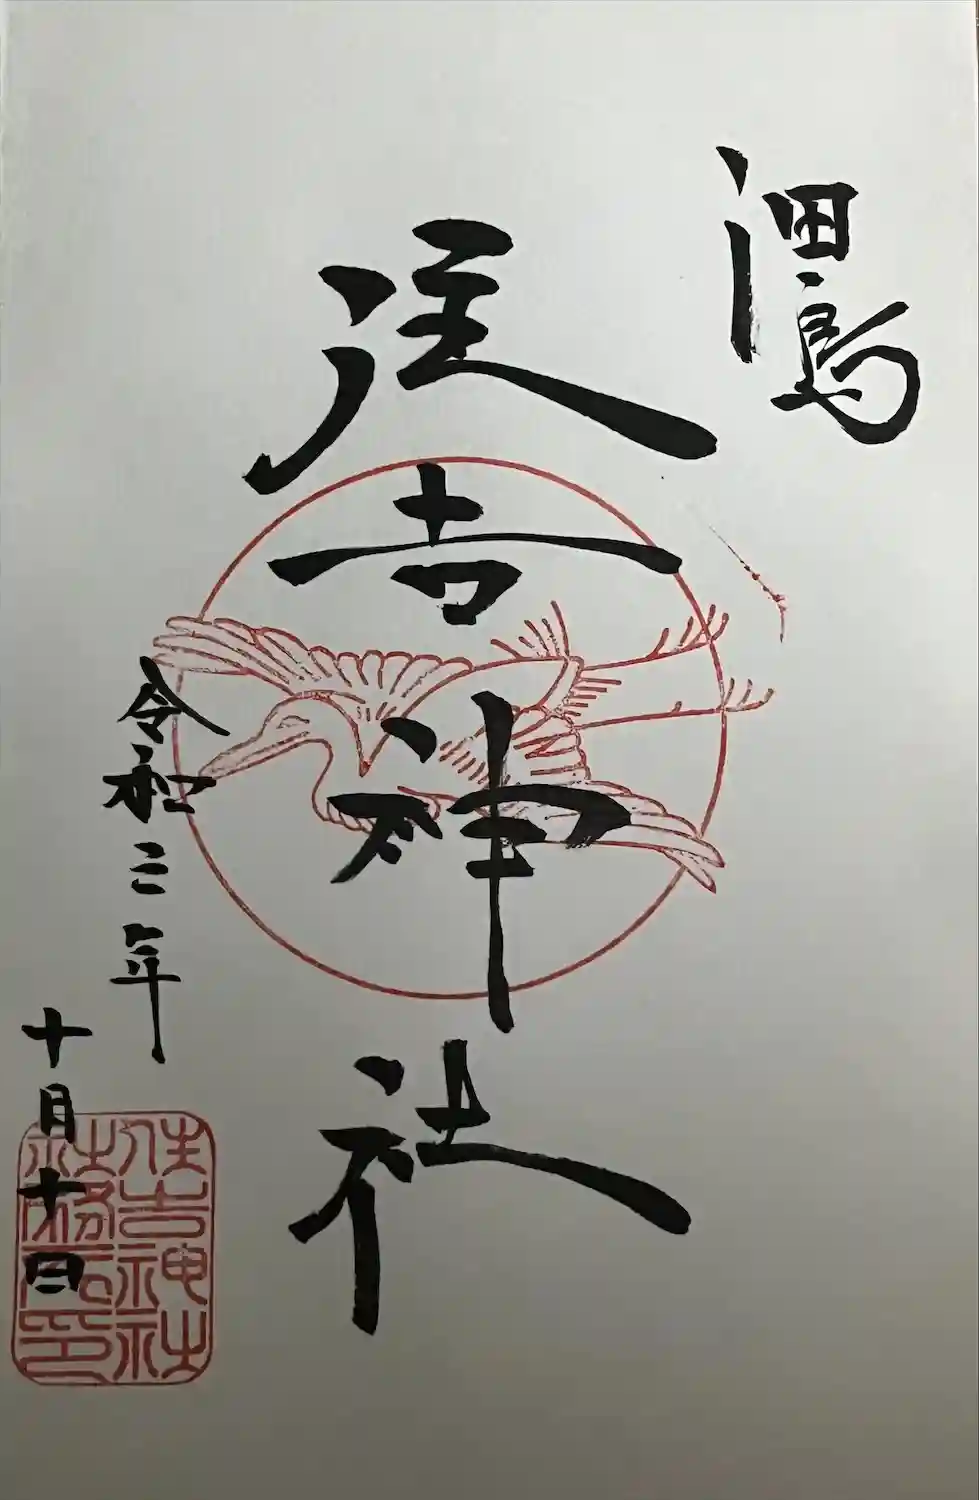 佃島
住吉神社
令和三年
十月十日
住吉神社
社務所印